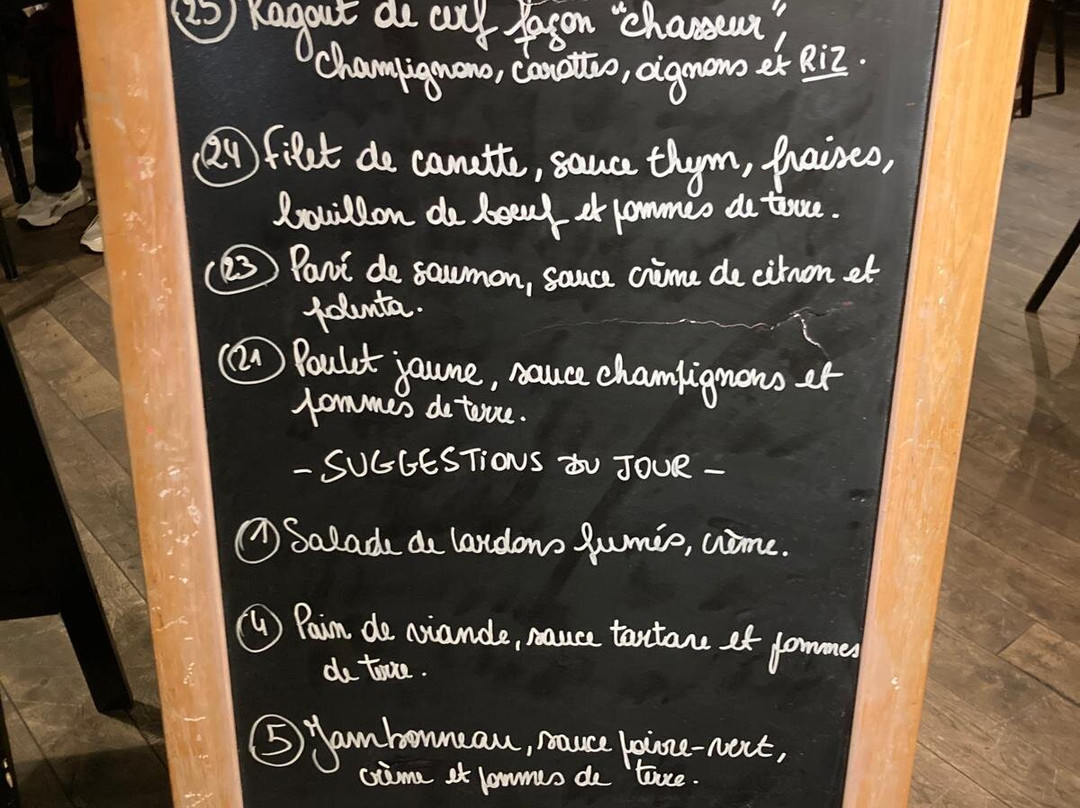 25 Ragout de cerf façon "chasseur",
champignons, carottes, oignons et RIZ.
24 Filet de canette, sauce thym, fraises,
bouillon de boeuf et pommes de terre.
23 Pavé de saumon, sauce crème de citron et
polenta.
21 Poulet jaune, sauce champignons et
pommes de terre.
- SUGGESTIONS DU JOUR -
1 Salade de lardons fumés, crème.
4 Pain de viande, sauce tartare et pommes
de terre.
5 Jambonneau, sauce poivre-vert,
crème et pommes de terre.